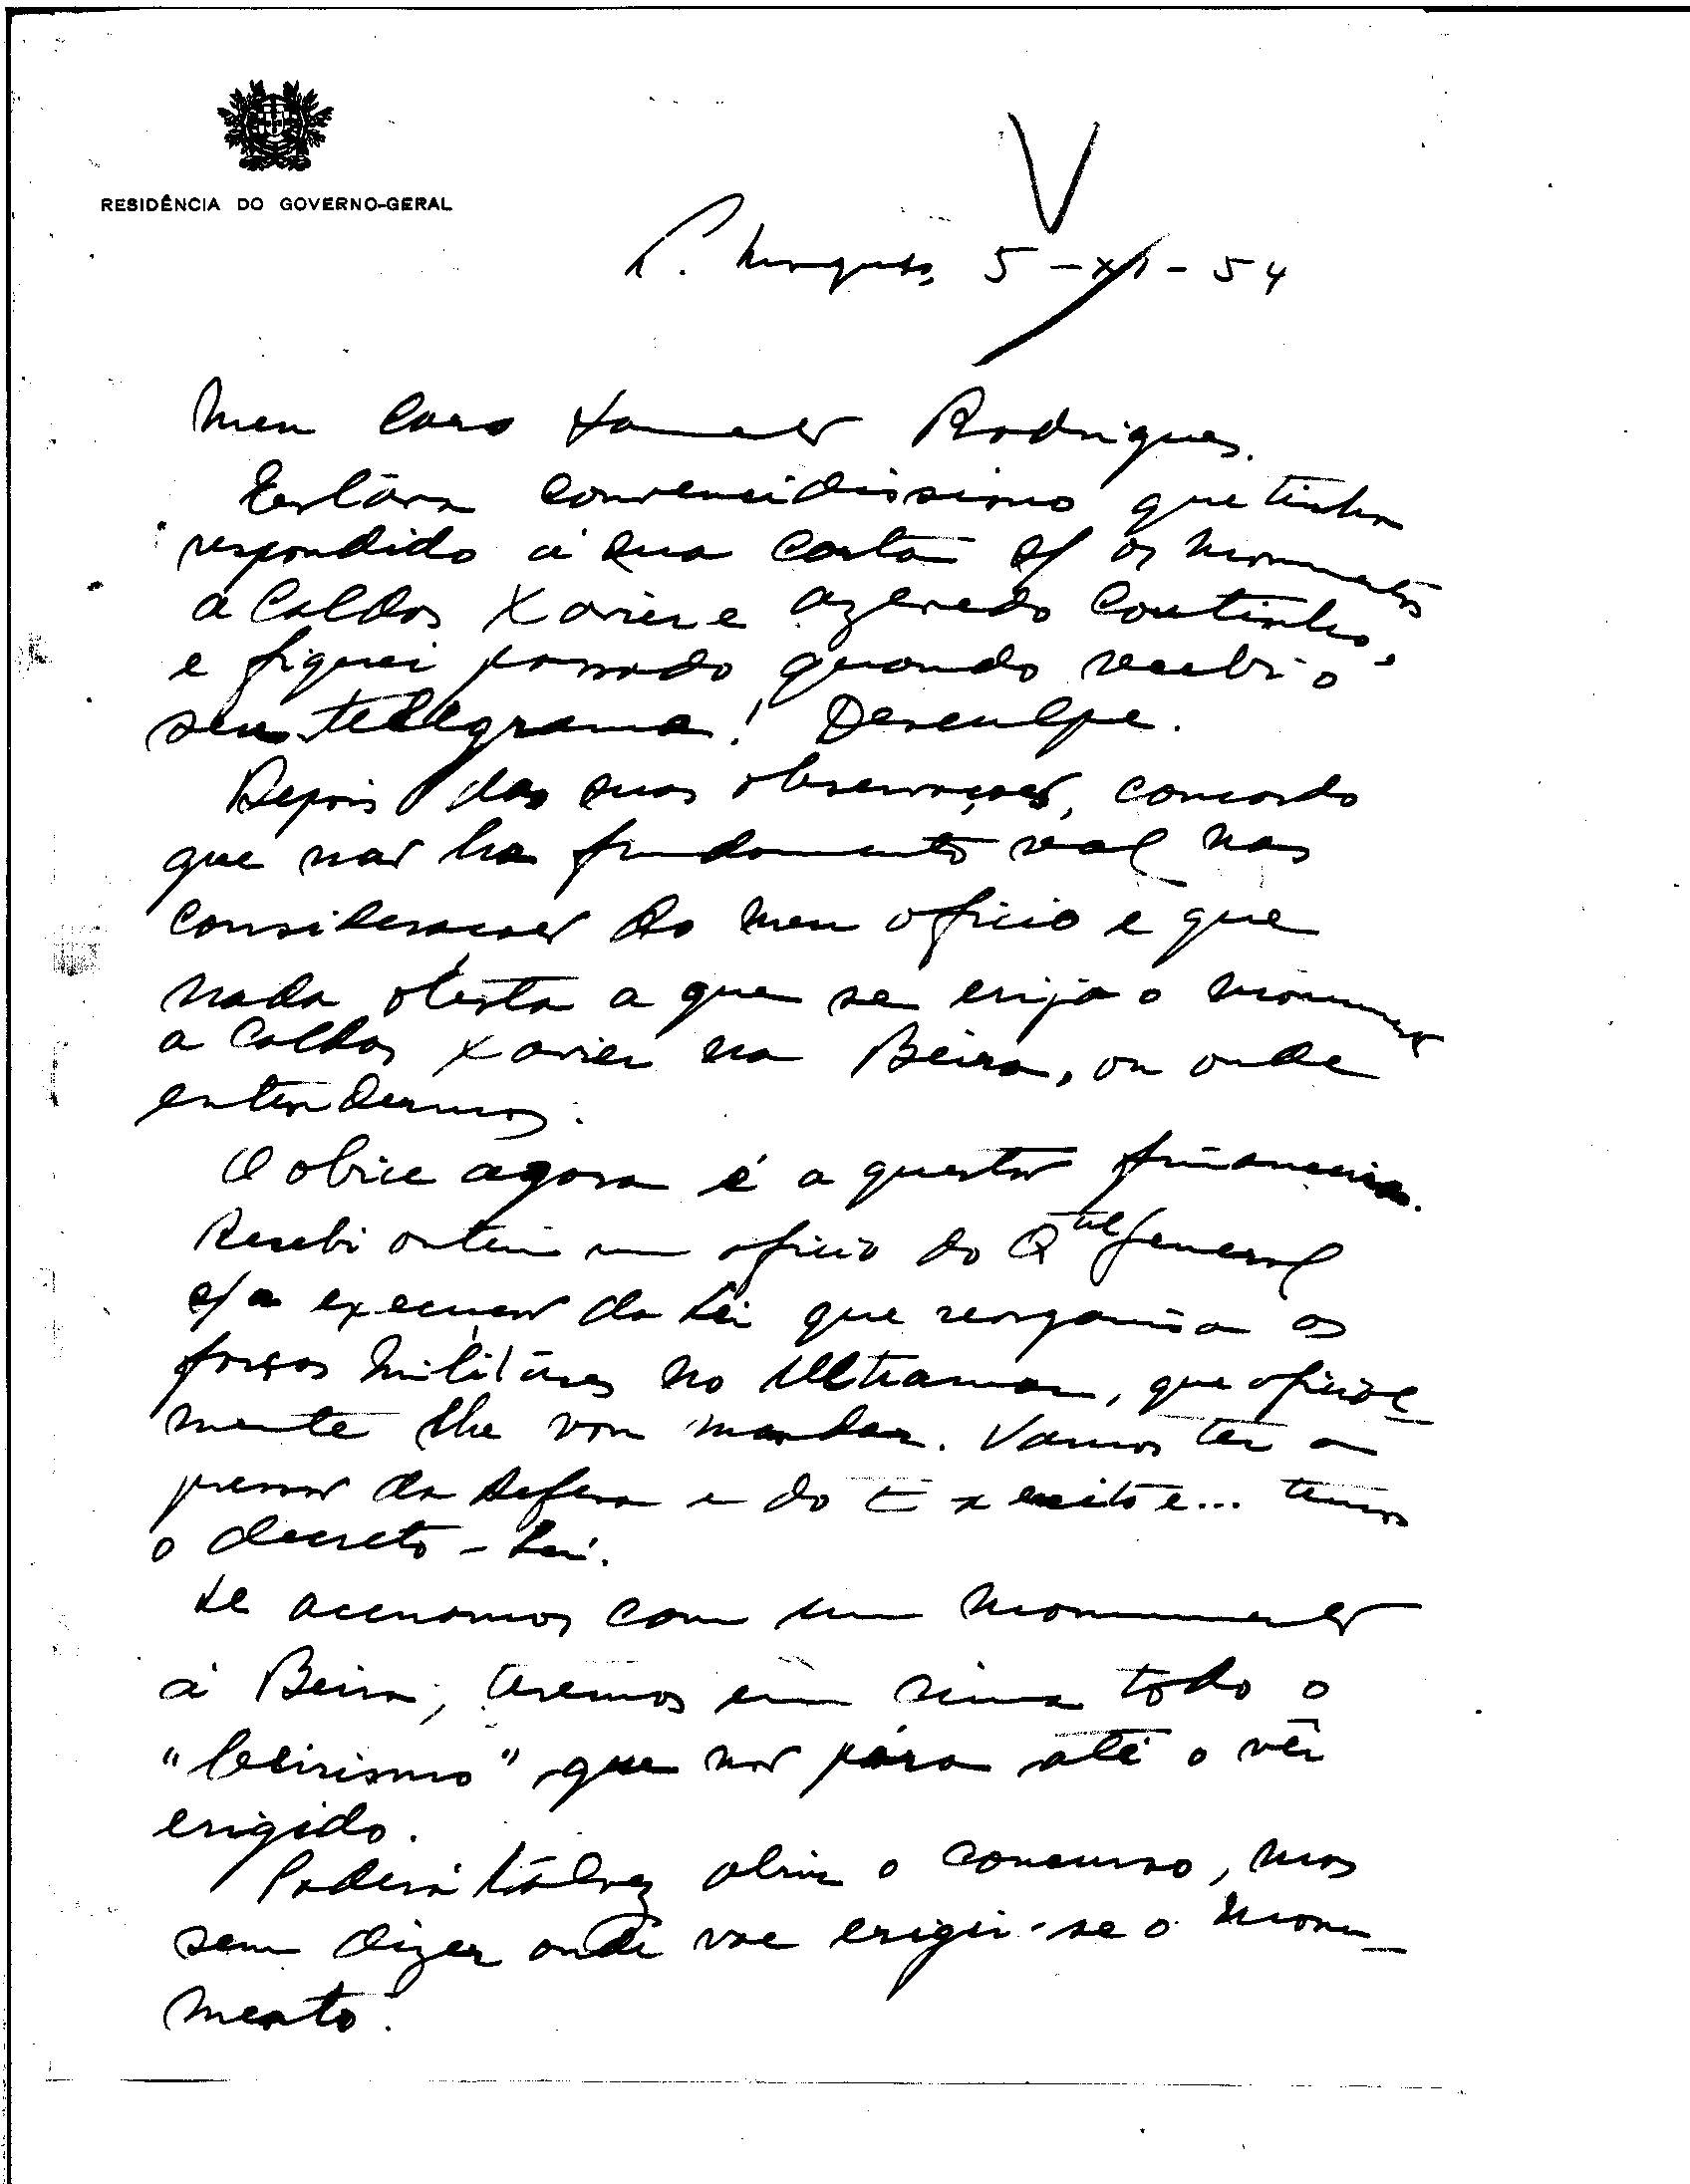 RESIDÊNCIA DO GOVERNO-GERAL
L. Marques, 5-XI-54
Meu Caro Sarmento Rodrigues.
Estava convencidissimo que tinha
respondido à sua carta s/ os monumentos
a Caldas Xavier e Azevedo Coutinho,
e fiquei passado quando recebi o
seu telegrama! Desculpe.
Depois das suas observações, concordo
que não ha fundamento real nas
considerações do meu oficio e que
nada obsta a que se erija o monumento
a Caldas Xavier na Beira, ou onde
entendermos.
O obice agora é a questão financeira.
Recebi ontem um oficio do Qtel General
s/ a execução da Lei que reorganisa as
forças militares no Ultramar, que oficial-
mente lhe vou mandar. Vamos ter a
pressão da Defesa e do Exercito e... temos
o decreto-Lei.
Se acenamos com um monumento
à Beira, teremos em cima todo o
"beirismo" que não pára até o vêr
erigido.
Poderá talvez abrir o concurso, mas
sem dizer onde vae erigir-se o monu-
mento.